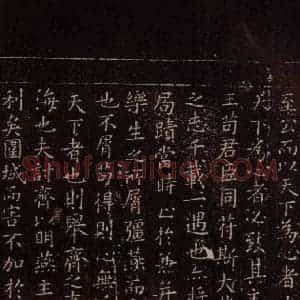 至公而以天下為心者
天下為心者必致其主
王苟君臣同符斯大
之志千載一遇也
局蹟當時止於兼并
樂生之所屑彊燕而
也不屑苟得則心無
天下者也則舉齊之事
海也夫討齊以明燕主
利矣圍城而害不加於